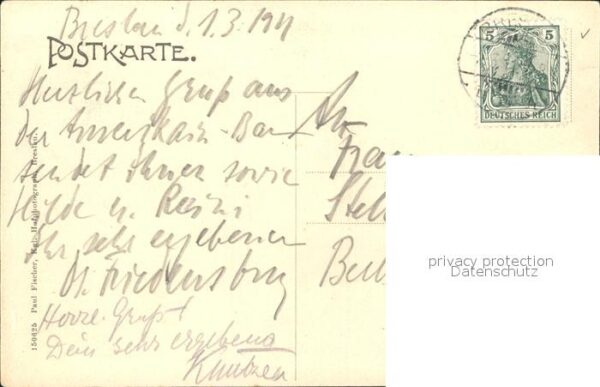 Breslau d. 1.3.1911
POSTKARTE.
Herzlichen Gruß aus
der Amerikan-Bar
sendet ihnen sowie
Hilde u.
Ihr sehr ergebener
Friedensburg
Gruß
Dein sehr ergebener
An
Frau
150625 Paul Fischer, Kgl. Hofphotograph, Breslau.
BRES
5 5
DEUTSCHES REICH
privacy protection
Datenschutz